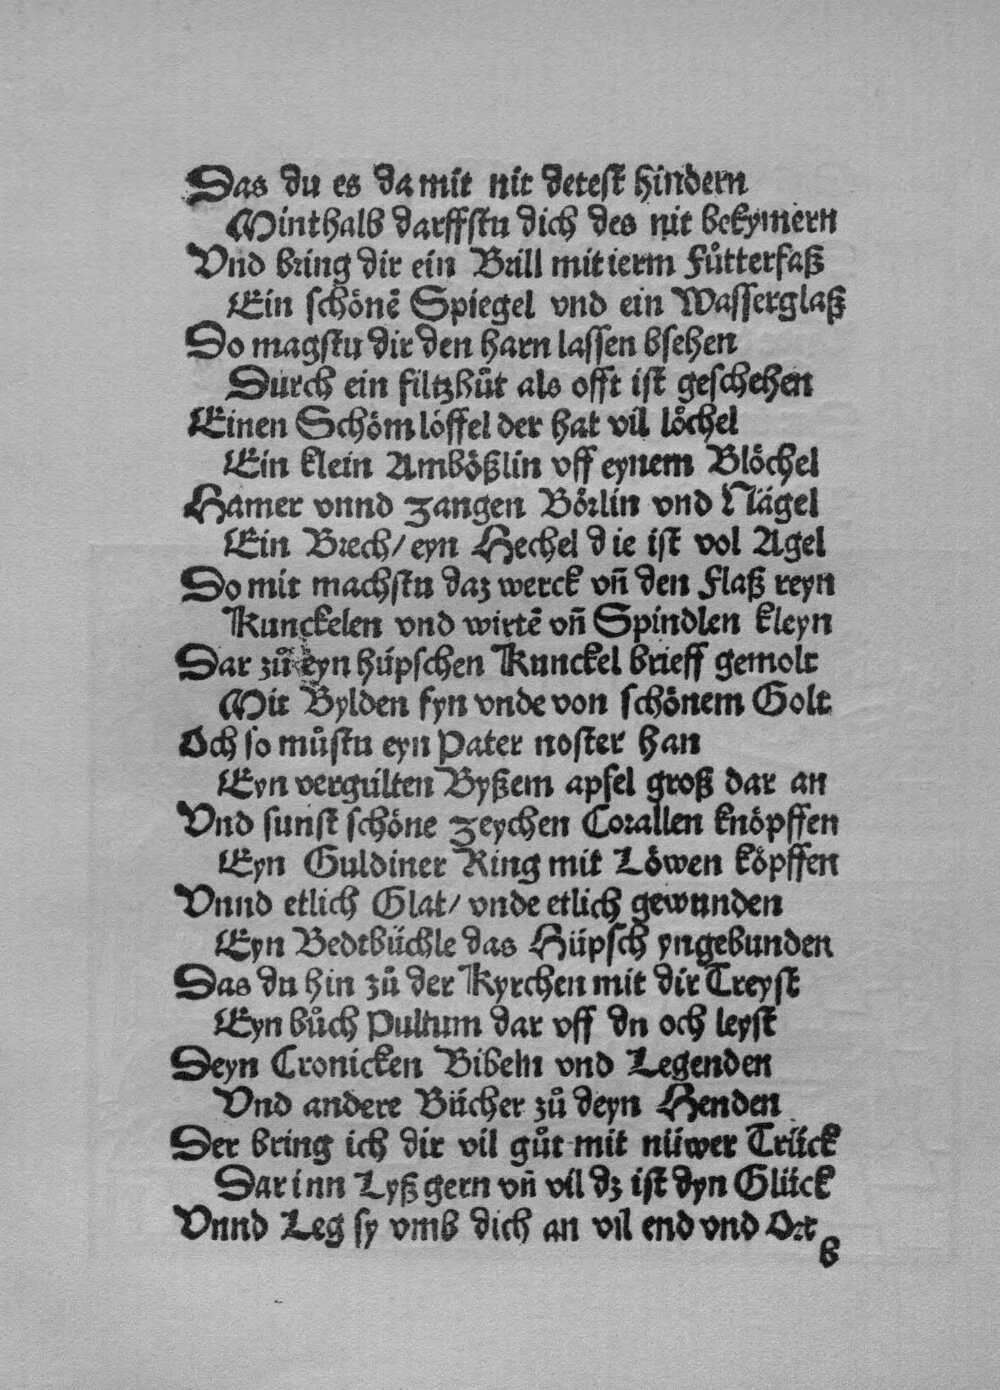 Das du es da mit nit detest hindern
Minthalb darffstu dich des nit bekymern
Vnd bring dir ein Brill mit ierm Fuͦtterfaß
Ein schoͤnē Spiegel vnd ein Wasserglaß
Do magstu dir den harn lassen bsehen
Durch ein filtzhuͦt als offt ist geschehen
Einen Schoͤmloͤffel der hat vil loͤchel
Ein klein Amboͤßlin vff eynem Bloͤchel
Hamer vnnd zangen Boͤrlin vnd Naͤgel
Ein Brech/ eyn Hechel die ist vol Agel
Do mit machstu daz werck vn̄ den Flaß reyn
Kunckelen vnd wirtē vn̄ Spindlen kleyn
Dar zuͦ eyn huͤpschen Kunckel brieff gemolt
Mit Bylden fyn vnde von schoͤnem Golt
Och so muͦstu eyn Pater noster han
Eyn vergulten Byßem apfel groß dar an
Vnd sunst schoͤne zeychen Corallen knoͤpffen
Eyn Guldiner Ring mit Loͤwen koͤpffen
Vnnd etlich Glat/ vnde etlich gewunden
Eyn Bedtbuͤchle das Huͤpsch yngebunden
Das du hin zuͦ der Kyrchen mit dir Treyst
Eyn buͦch Pultum dar vff du och leyst
Deyn Cronicken Bibeln vnd Legenden
Vnd andere Buͤcher zuͦ deyn Henden
Der bring ich dir vil guͦt mit nuͤwer Truͤck
Dar inn Lyß gern vn̄ vil dz ist dyn Gluͤck
Vnnd Leg sy vmb dich an vil end vnd Ort
b